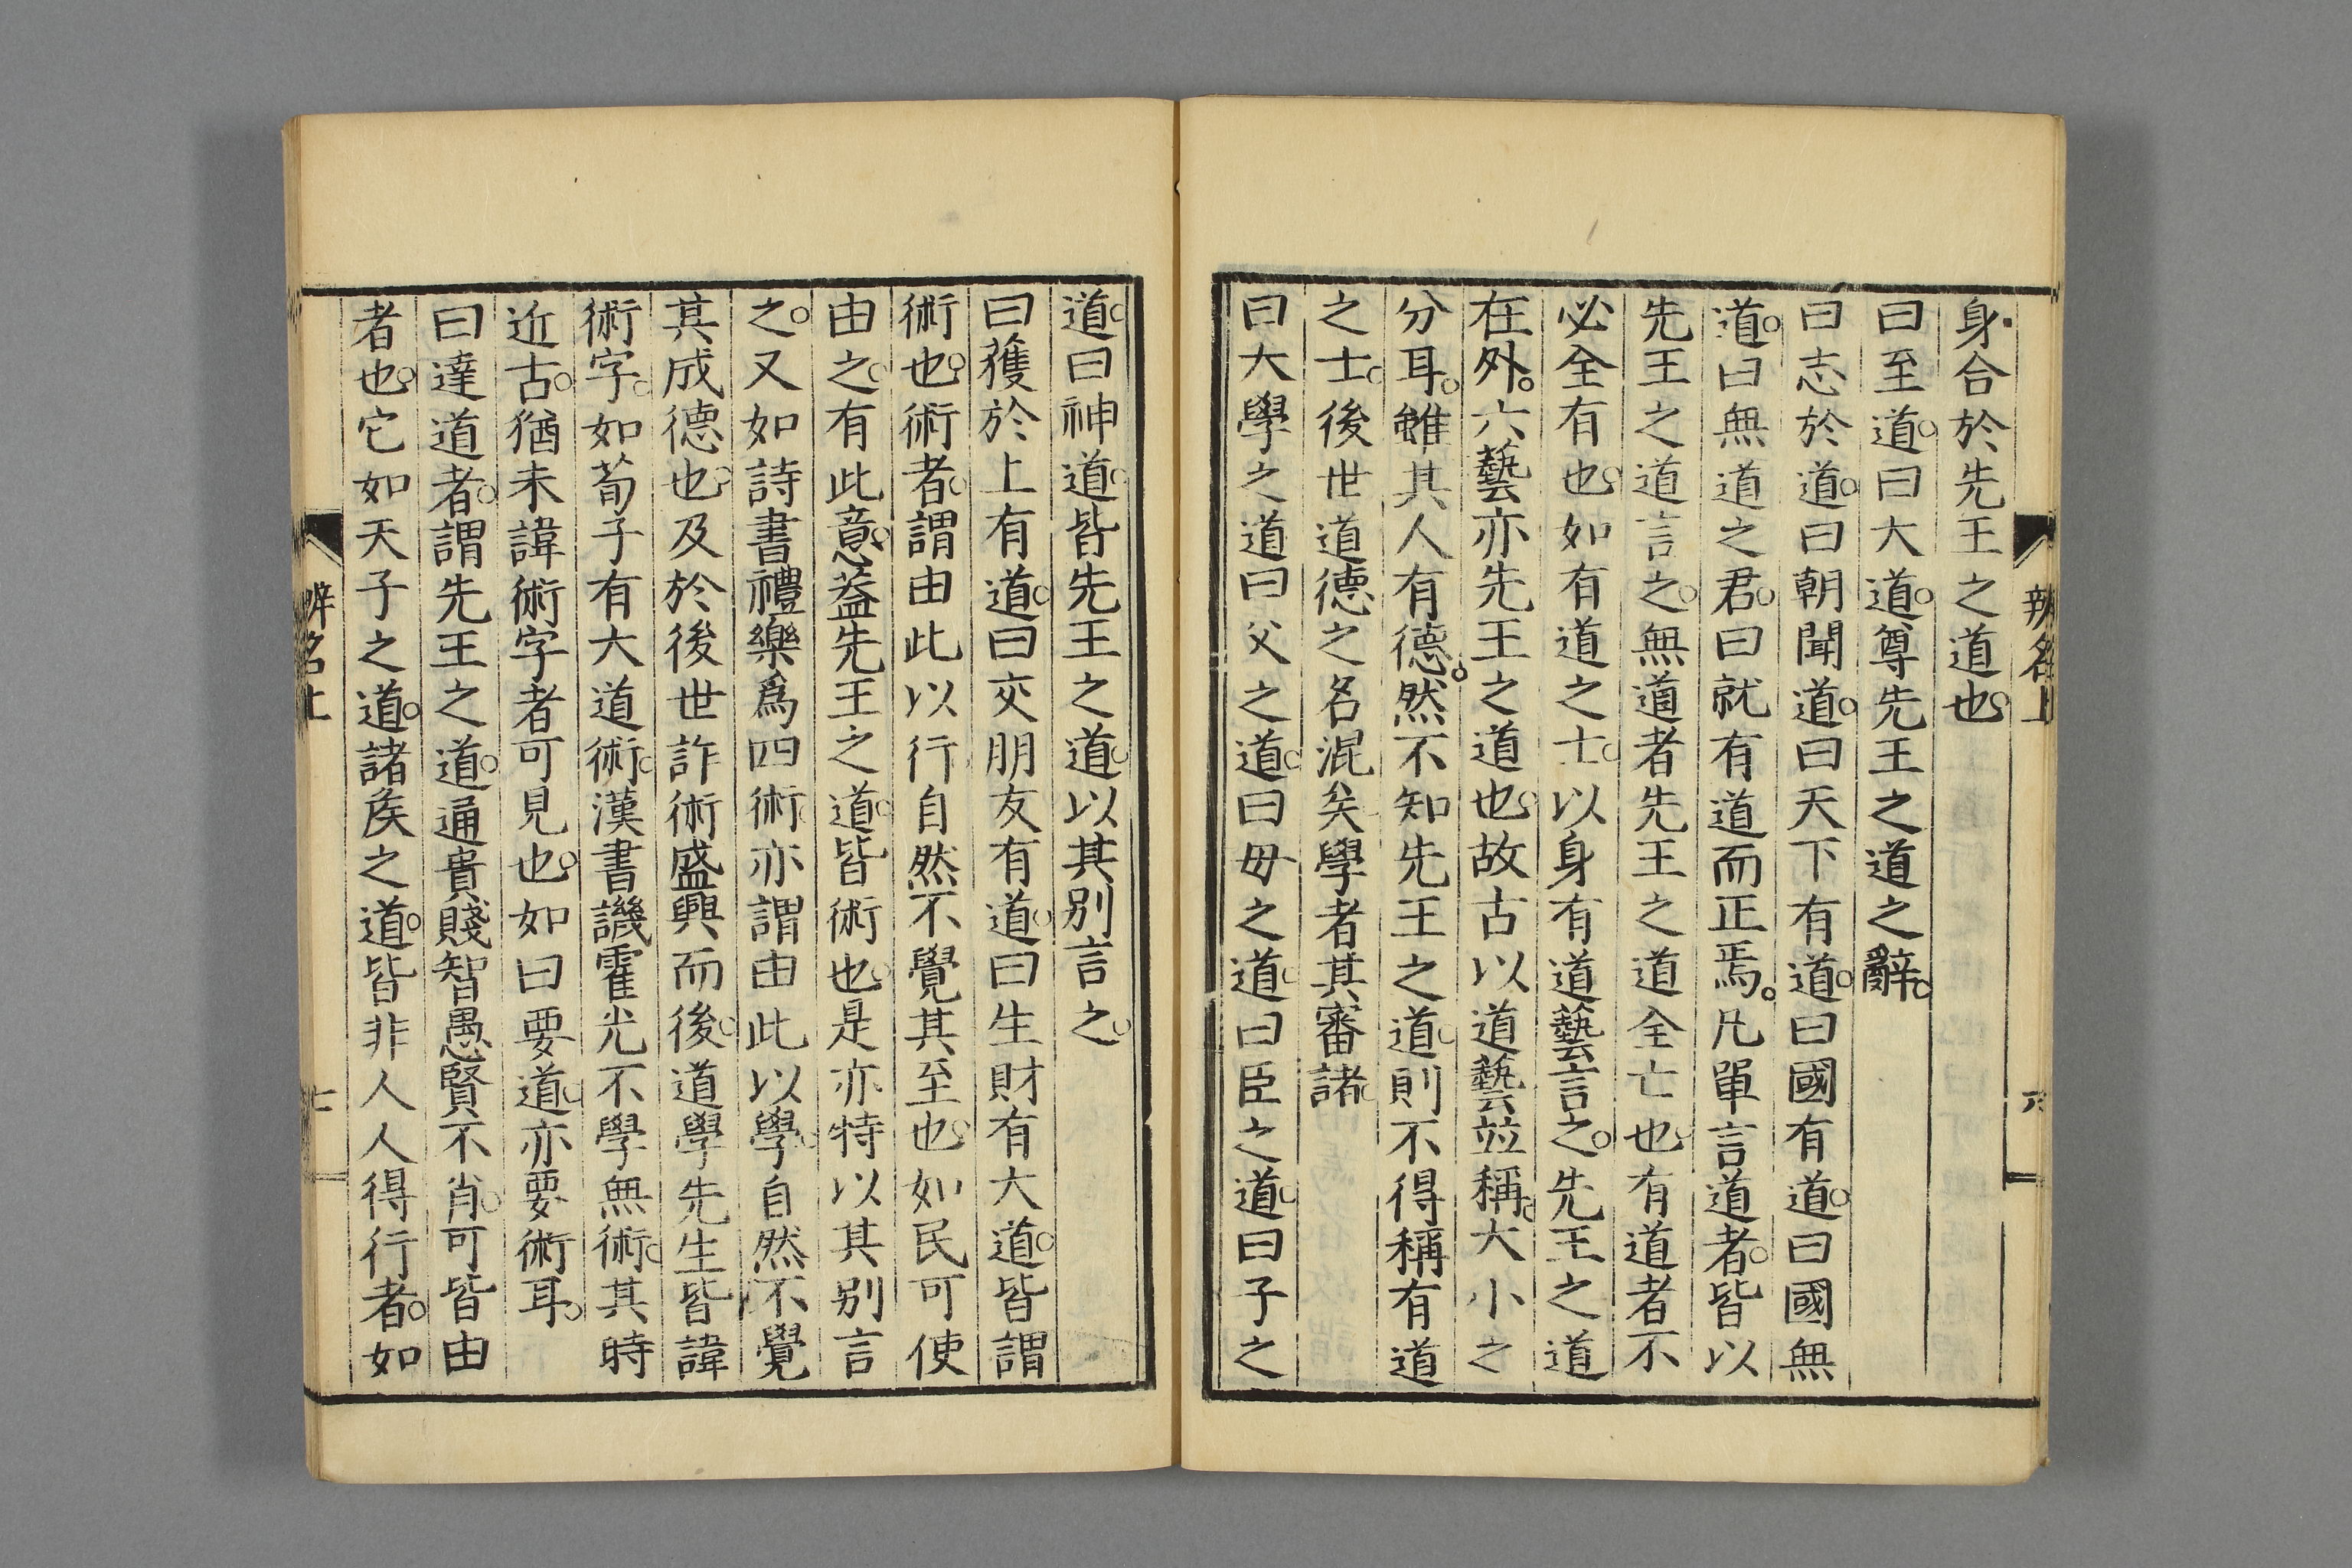 辨名上
六
身合於先王之道也。
曰至道。曰大道。尊先王之道之辭。
曰志於道。曰朝聞道。曰天下有道。曰國有道。曰國無
道。曰無道之君。曰就有道而正焉。凡單言道者。皆以
先王之道言之。無道者先王之道全亡也。有道者不
必全有也。如有道之士。以身有道藝言之。先王之道
在外。六藝亦先王之道也。故古以道藝並稱。大小之
分耳。雖其人有德。然不知先王之道。則不得稱有道
之士。後世道德之名混矣。學者其審諸。
曰大學之道。曰父之道。曰毋之道。曰臣之道。曰子之
道。曰神道。皆先王之道。以其別言之。
曰獲於上有道。曰交朋友有道。曰生財有大道。皆謂
術也。術者。謂由此以行。自然不覺其至也。如民可使
由之。有此意。葢先王之道。皆術也。是亦特以其別言
之。又如詩書禮樂爲四術。亦謂由此以學。自然不覺
其成德也。及於後世詐術盛興而後。道學先生皆諱
術字。如荀子有大道術。漢書譏霍光不學無術。其時
近古。猶未諱術字者可見也。如曰要道。亦要術耳。
曰達道者。謂先王之道。通貴賤智愚賢不肖。可皆由
者也。它如天子之道。諸矦之道。皆非人人得行者。如
辨名上
七